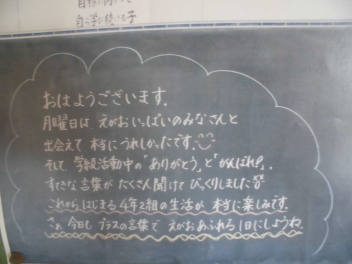 自ら学び続ける子
おはようございます。
月曜日は えがおいっぱいのみなさんと
出会えて 本当に うれしかったです。
そして 学級活動中の"ありがとう"と"がんばれ!"
すてきな言葉が たくさん聞けて びっくりしました
これから はじまる 4年2組の生活が 本当に楽しみです。
さぁ 今日も プラスの言葉で えがおあふれる 1日にしようね。